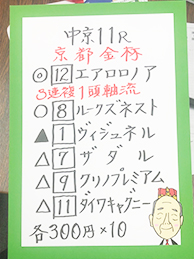 中京11R
京都金杯
◎ 12 エアロロノア
3連複1頭軸流
○ 8 ルークズネスト
▲ 1 ヴィジュネル
△ 7 ザダル
△ 9 グリノプレミアム
△ 11 ダイワキャグニー
各300円×10